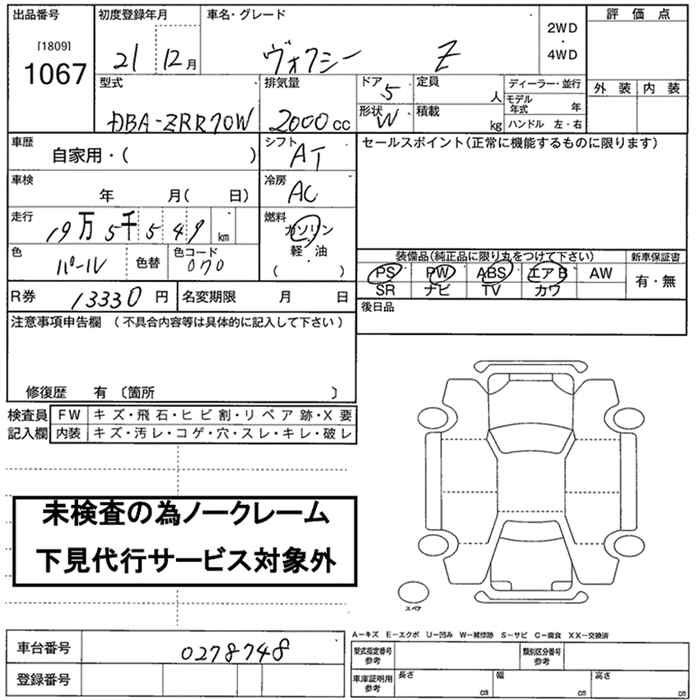 出品番号 初度登録年月 車名・グレード 評価点
[1809] 1067 21 12月 ヴォクシー Z 2WD・4WD
外装 内装
型式 排気量 ドア 5 定員 人 ディーラー・並行
DBA-ZRR70W 2000cc 形状 W 積載 kg モデル年式 年
ハンドル 左・右
車歴 自家用・( ) シフト AT セールスポイント(正常に機能するものに限ります)
車検 年 月( 日) 冷房 AC
走行 19万5千549 km 燃料 ガソリン
軽・油
( )
色 パール 色替 色コード 070
装備品(純正品に限り丸をつけて下さい) 新車保証書
PS PW ABS エアB AW 有・無
SR ナビ TV カワ
R券 13330円 名変期限 月 日 後日品
注意事項申告欄 (不具合内容等は具体的に記入して下さい)
修復歴 有 〔箇所 〕
検査員 FW キズ・飛石・ヒビ割・リペア跡・X要
記入欄 内装 キズ・汚レ・コゲ・穴・スレ・キレ・破レ
未検査の為ノークレーム
下見代行サービス対象外
スペア
A-キズ E-エクボ U-凹み W-補修跡 S-サビ C-腐食 XX-交換済
車台番号 0278748 型式指定番号 参考 類別区分番号 参考
登録番号 車庫証明用 参考 長さ cm 幅 cm 高さ cm